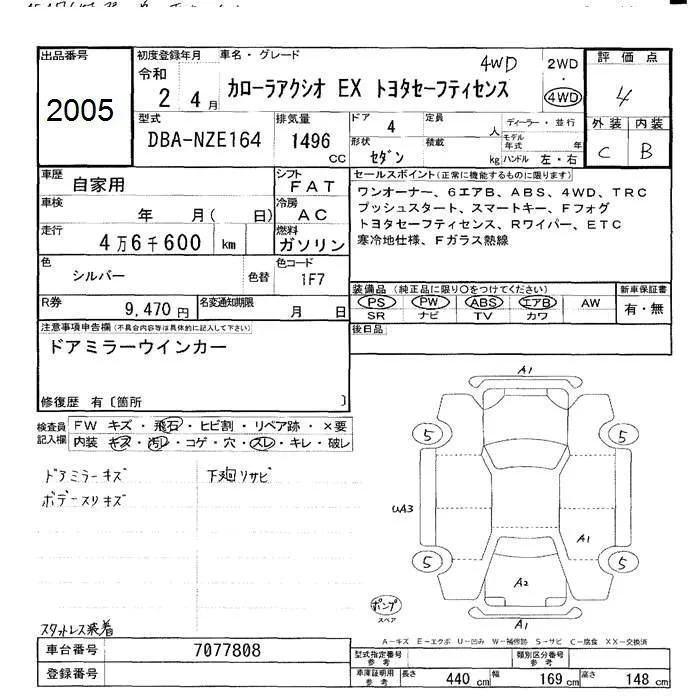 出品番号
2005
初度登録年月
令和
2 4月
車名・グレード
カローラアクシオ EX トヨタセーフティセンス
4WD
2WD
・
4WD
評価点
4
外装 内装
C B
型式
DBA-NZE164
排気量
1496
CC
ドア 4
定員 人
ディーラー・並行
モデル年式 年
形状
セダン
積載 kg
ハンドル 左・右
車歴
自家用
シフト
FAT
車検
年 月( 日)
冷房
AC
走行
4万6千600 km
燃料
ガソリン
色
シルバー
色替
色コード
1F7
R券
9,470円
名変通知期限
月 日
セールスポイント(正常に機能するものに限ります)
ワンオーナー、6エアB、ABS、4WD、TRC
プッシュスタート、スマートキー、Fフォグ
トヨタセーフティセンス、Rワイパー、ETC
寒冷地仕様、Fガラス熱線
装備品(純正品に限り○をつけてください)
PS PW ABS エアB AW
SR ナビ TV カワ
新車保証書
有・無
後日品
注意事項申告欄(不具合内容等は具体的に記入して下さい)
ドアミラーウインカー
修復歴 有〔箇所 〕
検査員
記入欄
FW キズ・飛石・ヒビ割・リペア跡・×要
内装 キズ・汚レ・コゲ・穴・スレ・キレ・破レ
ドアミラーキズ
ボデースリキズ
下廻リサビ
スタットレス装着
A1
5
5
UA3
A1
5
5
A2
A1
ポンプ
スペア
A−キズ E−エクボ U−凹み W−補修跡 S−サビ C−腐食 XX−交換済
車台番号
7077808
登録番号
型式指定番号
参考
類別区分番号
参考
車庫証明用
参考
長さ 440 cm
幅 169 cm
高さ 148 cm